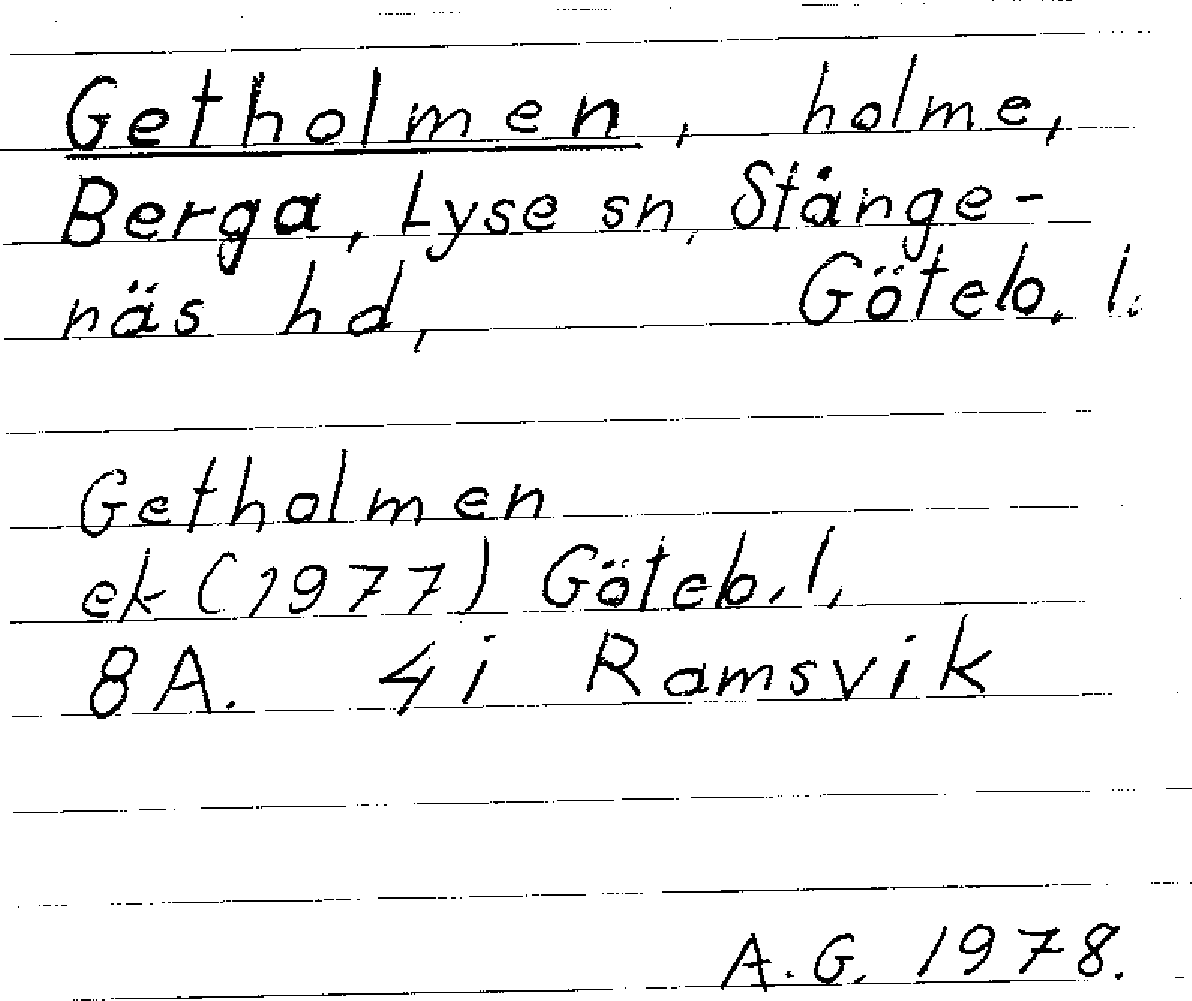 Getholmen, holme,
Berga, Lyse sn, Stånge-
näs hd, Göteb. l.
Getholmen
ek (1977) Göteb. l,
8A. 4i Ramsvik
A.G. 1978.